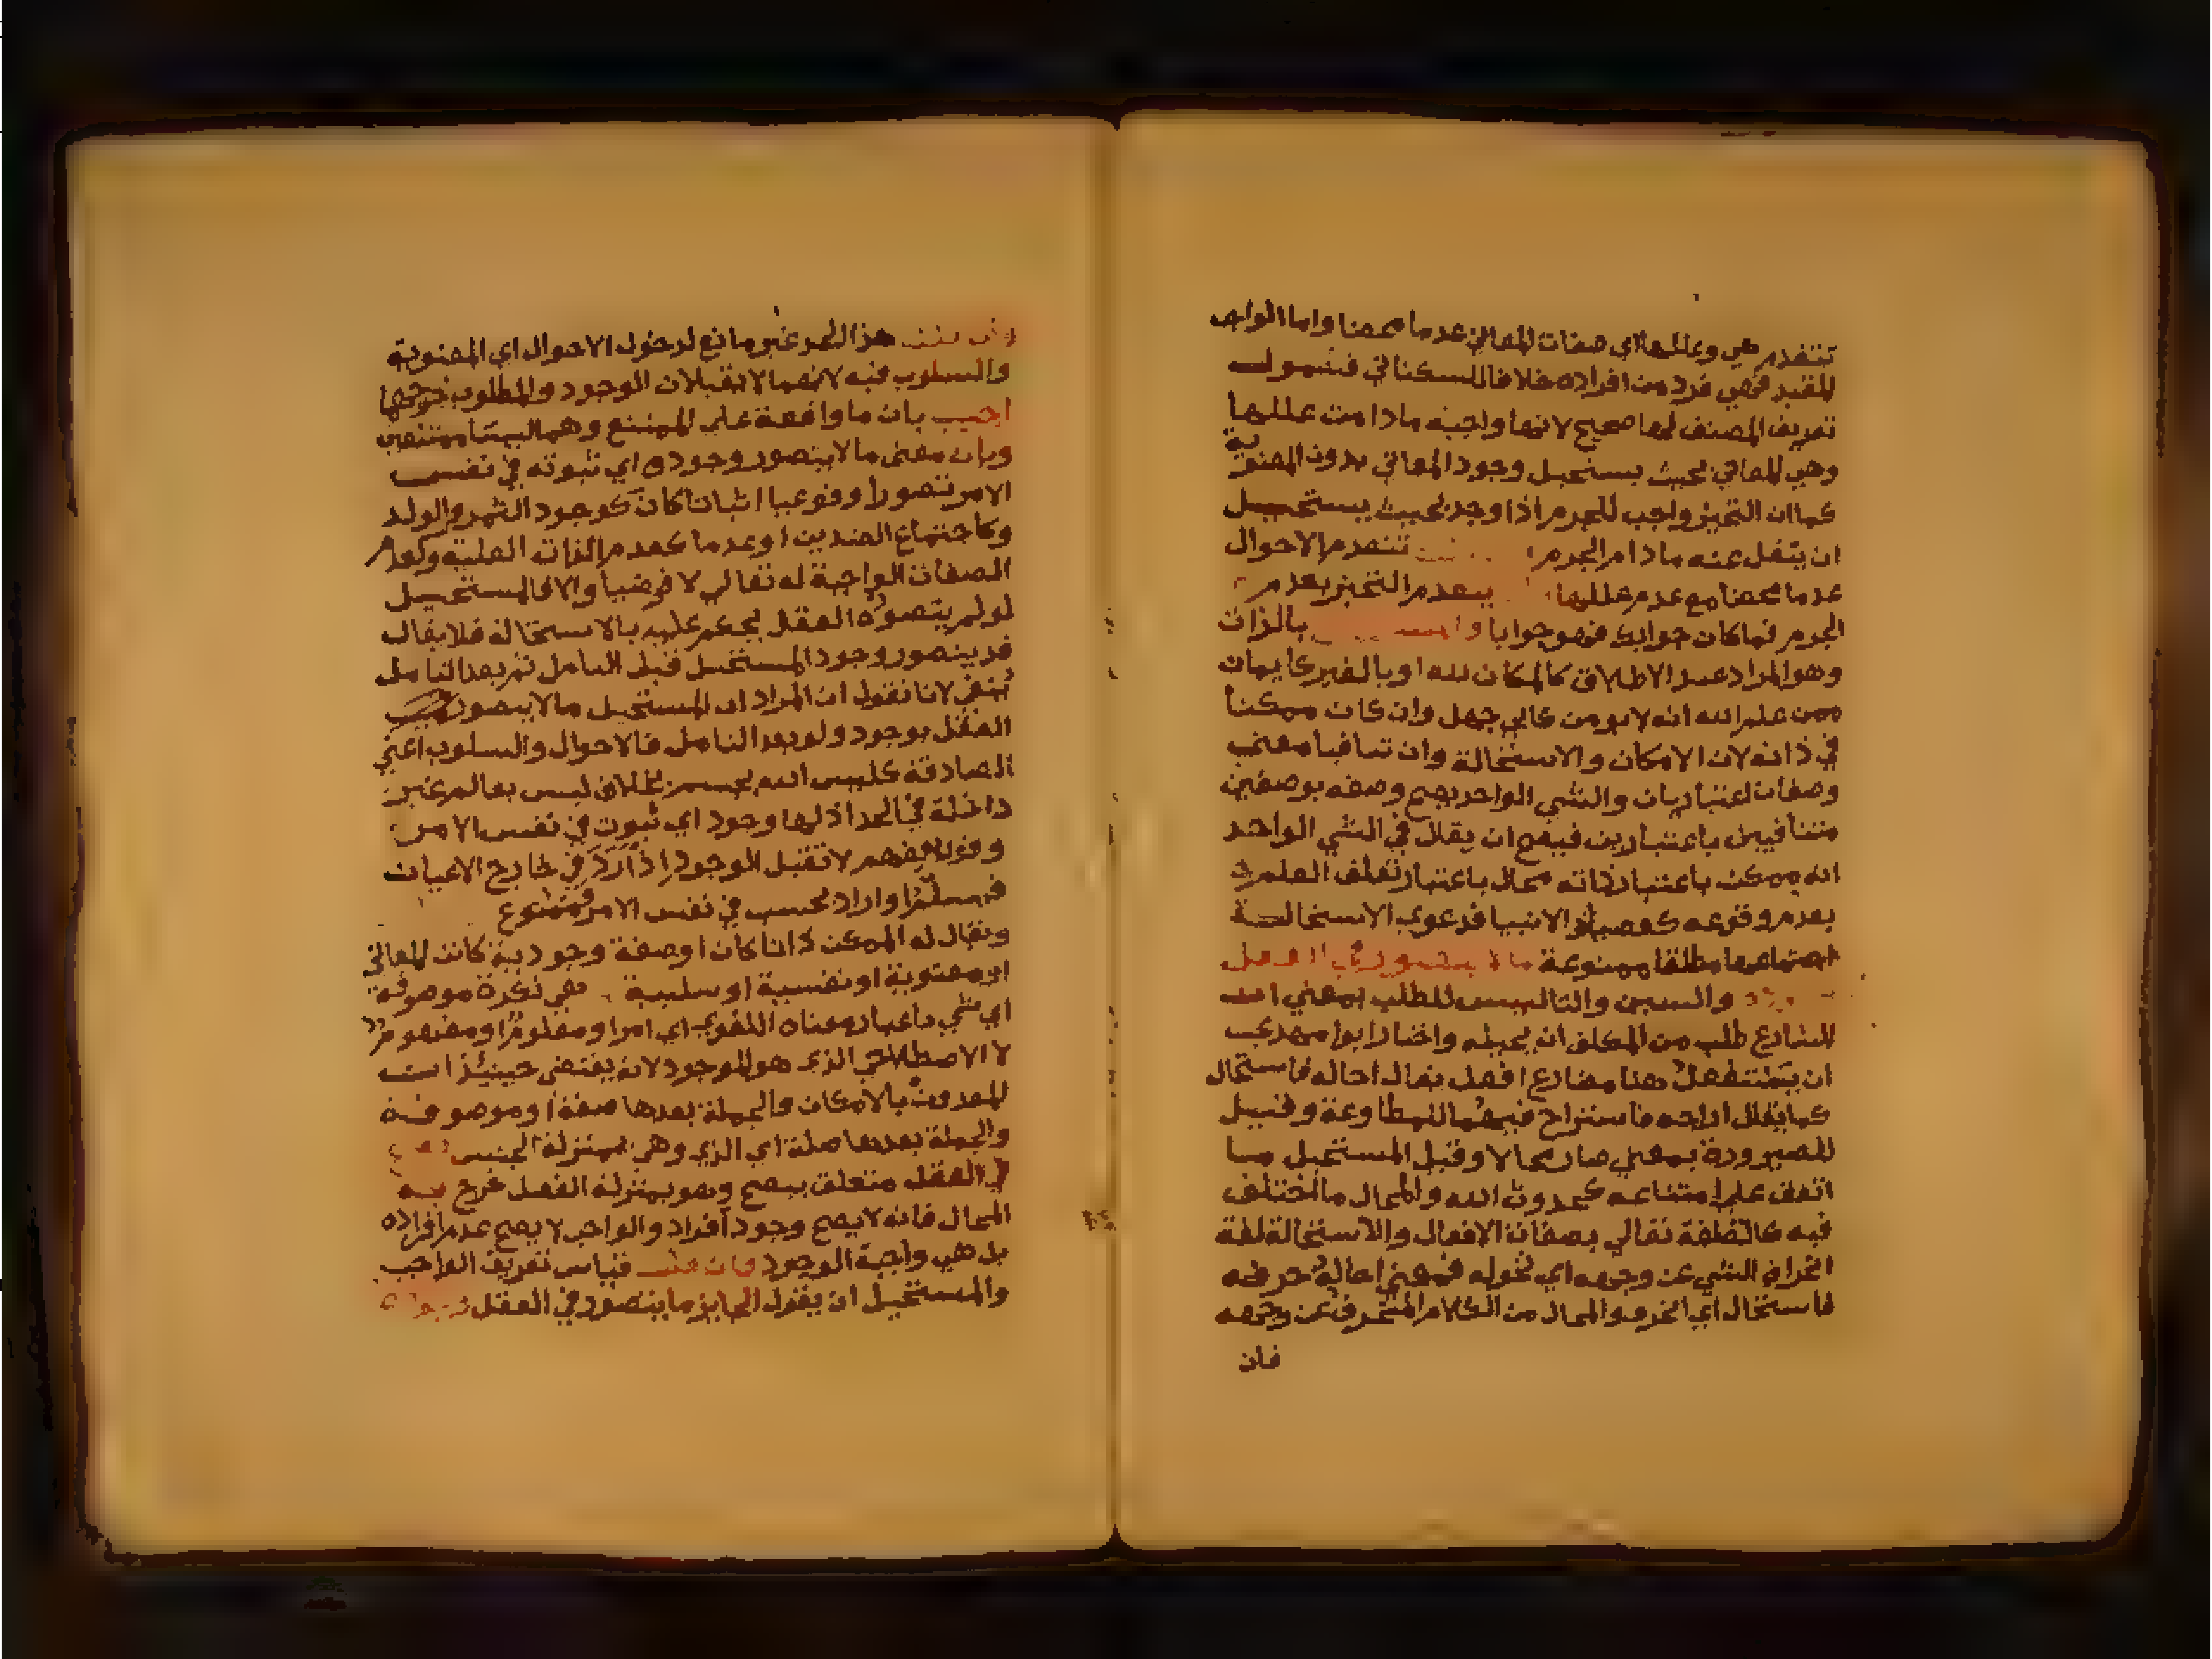 تنعدم هي وعللها اي صفات المعاني عدما محضا واما الواجب
المقيد فهي فرد من افراده خلافا للسكتاني فشمول
تعريف المصنف لها صحيح لانها واجبة مادامت عللها
وهي المعاني بحيث يستحيل وجود المعاني بدون المعنوية
كما ان التحيز واجب للجرم اذا وجد بحيث يستحيل
ان ينفك عنه مادام الجرم تنعدم الاحوال
عدما محضا مع عدم عللها يعدم التحيز بعدم
الجرم فما كان جوابك فهو جوابنا بالذات
وهو المراد عند الاطلاق كالمكان لله او بالغير كايمان
ممن علم الله انه لا يومن كابي جهل وان كان ممكنا
في ذاته لان الامكان والاستحالة وان تنافيا معني
وصفان اعتباريان والشي الواحد يصح وصفه بوصفين
متنافيين باعتبارين فيصح ان يقال في الشي الواحد
انه ممكن باعتبار ذاته محال باعتبار تعلق العلم
بعدم وقوعه كعصيان الانبيا فدعوي الاستحالة
اجتماعهما مطلقا ممنوعة ما لا يتصور في العقل
والسين والتا ليس للطلب بمعني ان
الشارع طلب من المكلف ان يحيله واختار ابو مهدي
ان يستفعل هنا مضارع افعل يقال احاله فاستحال
كما يقال اراحه فاستراح فهما للمطاوعة وقيل
للصيرورة بمعني صار محالا وقيل المستحيل ما
اتفق علي امتناعه كحدوث الله والمحال ما اختلف
فيه تعالي بصفات الافعال والاستحالة لغة
انحراف الشي عن وجهه اي تحوله فمعني احاله حرفه
فاستحال اي انحرف والمحال من الكلام المنحرف عن وجهه
فان
هذا الحد غير مانع لدخول الاحوال اي المعنوية
والسلوب فيه لانهما لا يقبلان الوجود والمطلوب خروجها
اجيب بان ما واقعة علي الممتنع وهما ليستا ممتنعين
وبان معني ما لا يتصور وجوده اي ثبوته في نفس
الامر تصورا وقوعيا اثباتا كان كوجود الشريك والولد
وكاجتماع الضدين او عدما كعدم الذات العلية وكعدم
الصفات الواجبة له تعالي لا فرضيا والا فالمستحيل
لو لم يتصوره العقل لم يحكم عليه بالاستحالة فلا يقال
قد يتصور وجود المستحيل قبل التامل ثم بعد التامل
ينفي لانا نقول ان المراد ان المستحيل ما لا يتصور
العقل وجوده ولو بعد التامل فالاحوال والسلوب اعني
الصادقة كليس الله بجسم بخلاف ليس بعالم غير
داخلة في الحد اذ لها وجود اي ثبوت في نفس الامر
وقول بعضهم لا تقبل الوجود اذ اراد في خارج الاعيان
فمسلم او اراد بحسب في نفس الامر فممنوع
ويقال له الممكن ذاتا كان او صفة وجودية كانت كالمعاني
او معنوية او نفسية او سلبية هي نكرة موصوفة
اي شي باعتبار معناه اللغوي اي امر او معلوم او مفهوم
لا الاصطلاحي الذي هو الموجود لانه يقتضي حينئذ
المعدوم بالامكان والجملة بعدها صفة او موصوفة
والجملة بعدها صلة اي الذي وهي بمنزلة الجنس
في العقل متعلق بيصح وهو بمنزلة الفصل خرج به
المحال فانه لا يصح وجود افراده والواجب لا يصح عدم افراده
بل هي واجبة الوجود فان قلت قياس تعريف الواجب
والمستحيل ان يقول الجايز ما يتصور في العقل